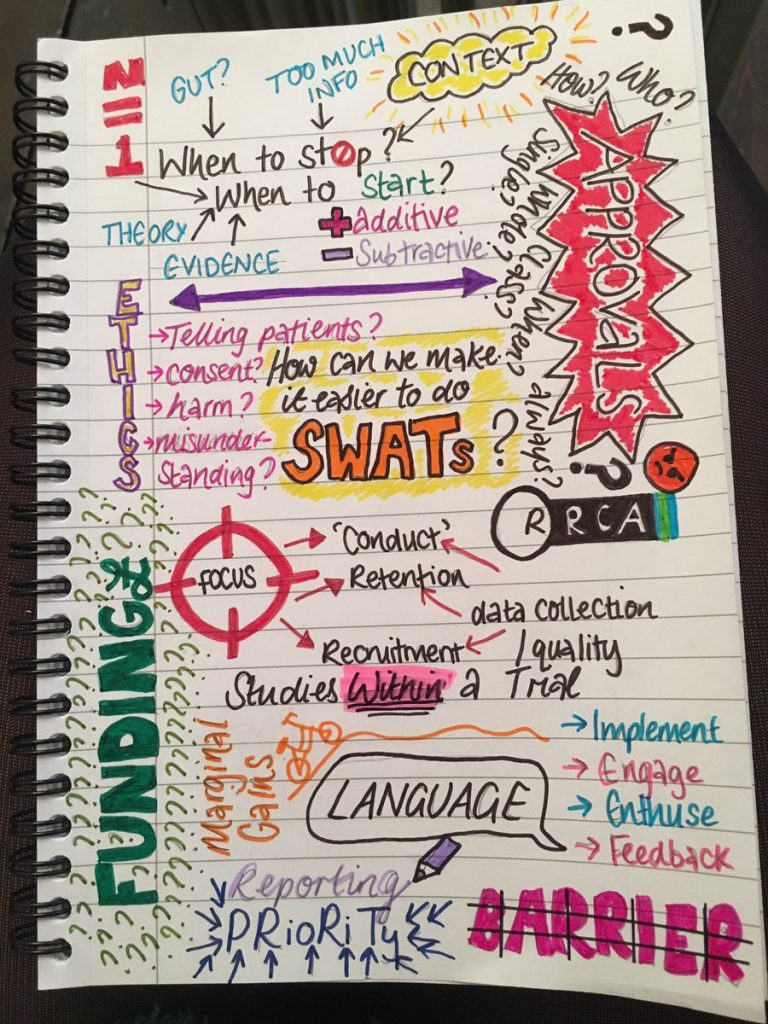 1 = N
GUT?
TOO MUCH
INFO
CONTEXT
?
How? Who?
When to stop?
When to start?
THEORY
EVIDENCE
+ additive
- Subtractive
APPROVALS
?
Single? Whole? Class? When? always?
ETHICS
→ Telling patients?
→ consent?
→ harm?
→ misunder-
standing?
How can we make
it easier to do
SWATs?
RRCA
FUNDING £
FOCUS
'Conduct'
Retention
Recruitment
data collection
/quality
Studies Within a Trial
Marginal
Gains
LANGUAGE
→ Implement
→ Engage
→ Enthuse
→ Feedback
Reporting
PRioRiTy
BARRIER